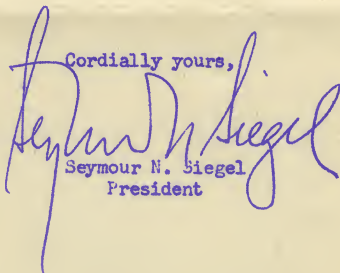 Cordially yours,
Seymour N Siegel
Seymour N. Siegel
President